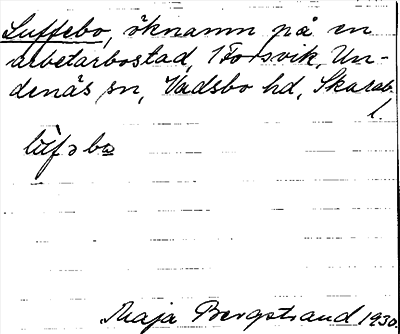 Luffebo, öknamn på en
arbetarbostad, i Forsvik, Un-
denäs sn, Vadsbo hd, Skarab.
l.
Maja Bergstrand 1930